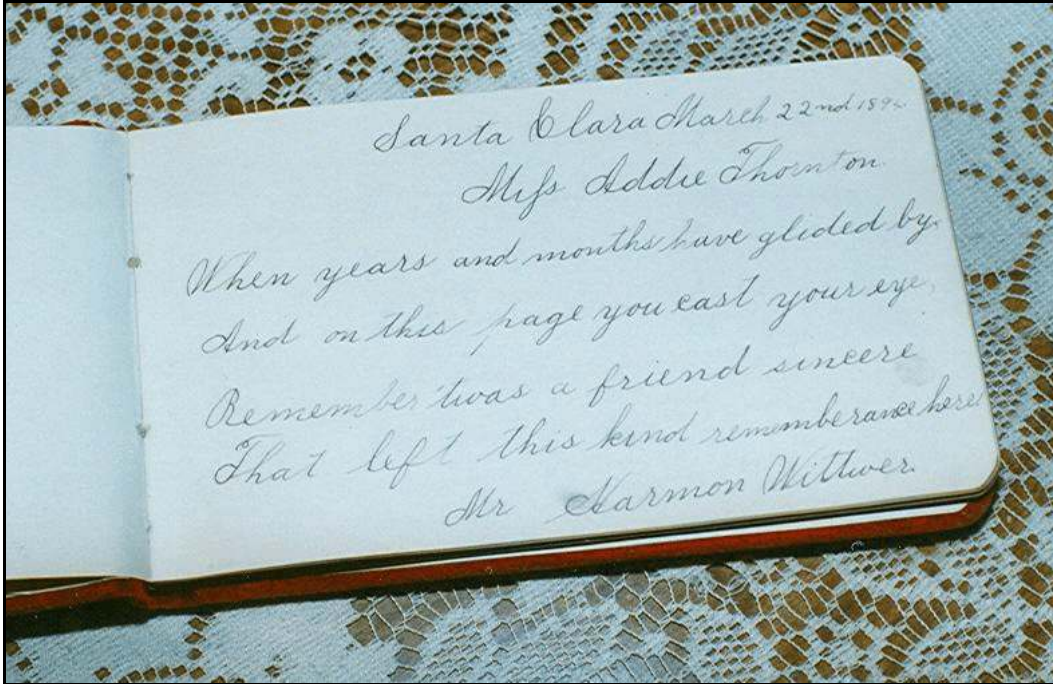 Santa Clara March 22nd
Miss Addie Thornton
When years and months have glided by.
And on this page you cast your eye,
Remember 'twas a friend sincere
That left this kind rememberance here.
Mr Harmon Wittwer.